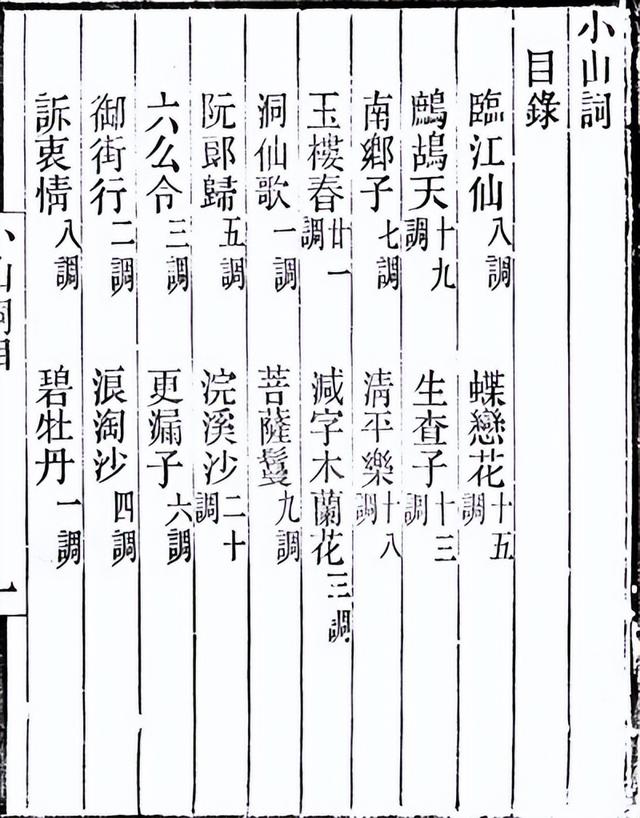 小山詞
目錄
臨江仙八調 蝶戀花十五調
鷓鴣天十九調 生查子十三調
南鄉子七調 清平樂十八調
玉樓春廿一調 減字木蘭花三調
洞仙歌一調 菩薩鬘九調
阮郎歸五調 浣溪沙二十調
六么令三調 更漏子六調
御街行二調 浪淘沙四調
訴衷情八調 碧牡丹一調
小山詞目 一